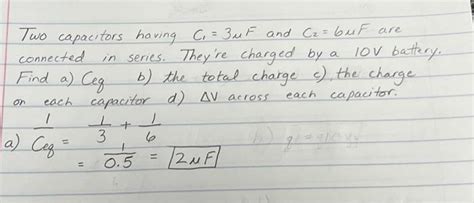 Two capacitors having C₁ = 3μF and C₂ = 6μF are
connected in series. They're charged by a 10V battery.
Find a) Ceq b) the total charge c) the charge
on each capacitor d) ΔV across each capacitor.
a) 1/Ceq = 1/3 + 1/6
= 1/0.5 = 2μF